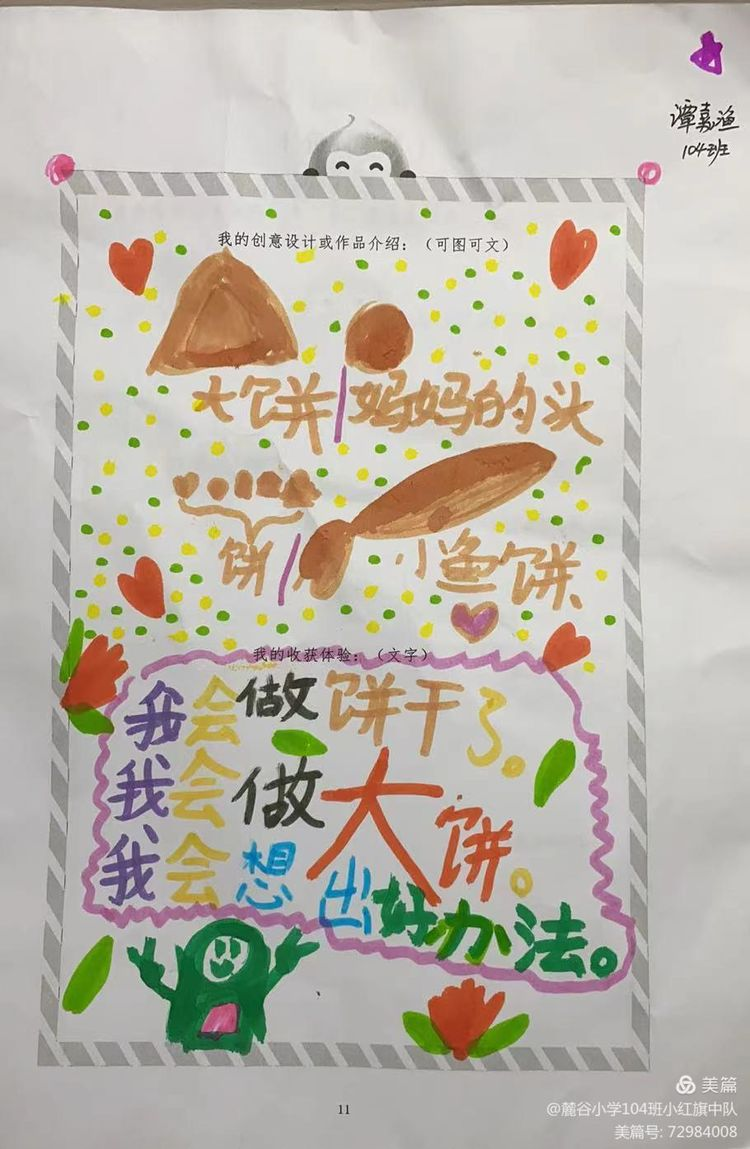 谭嘉渔
104班
我的创意设计或作品介绍：（可图可文）
大饼 妈妈的头
饼 小鱼饼
我的收获体验：（文字）
我会做饼干了。
我会做大饼。
我会想出好办法。
11
美篇
@麓谷小学104班小红旗中队
美篇号: 72984008